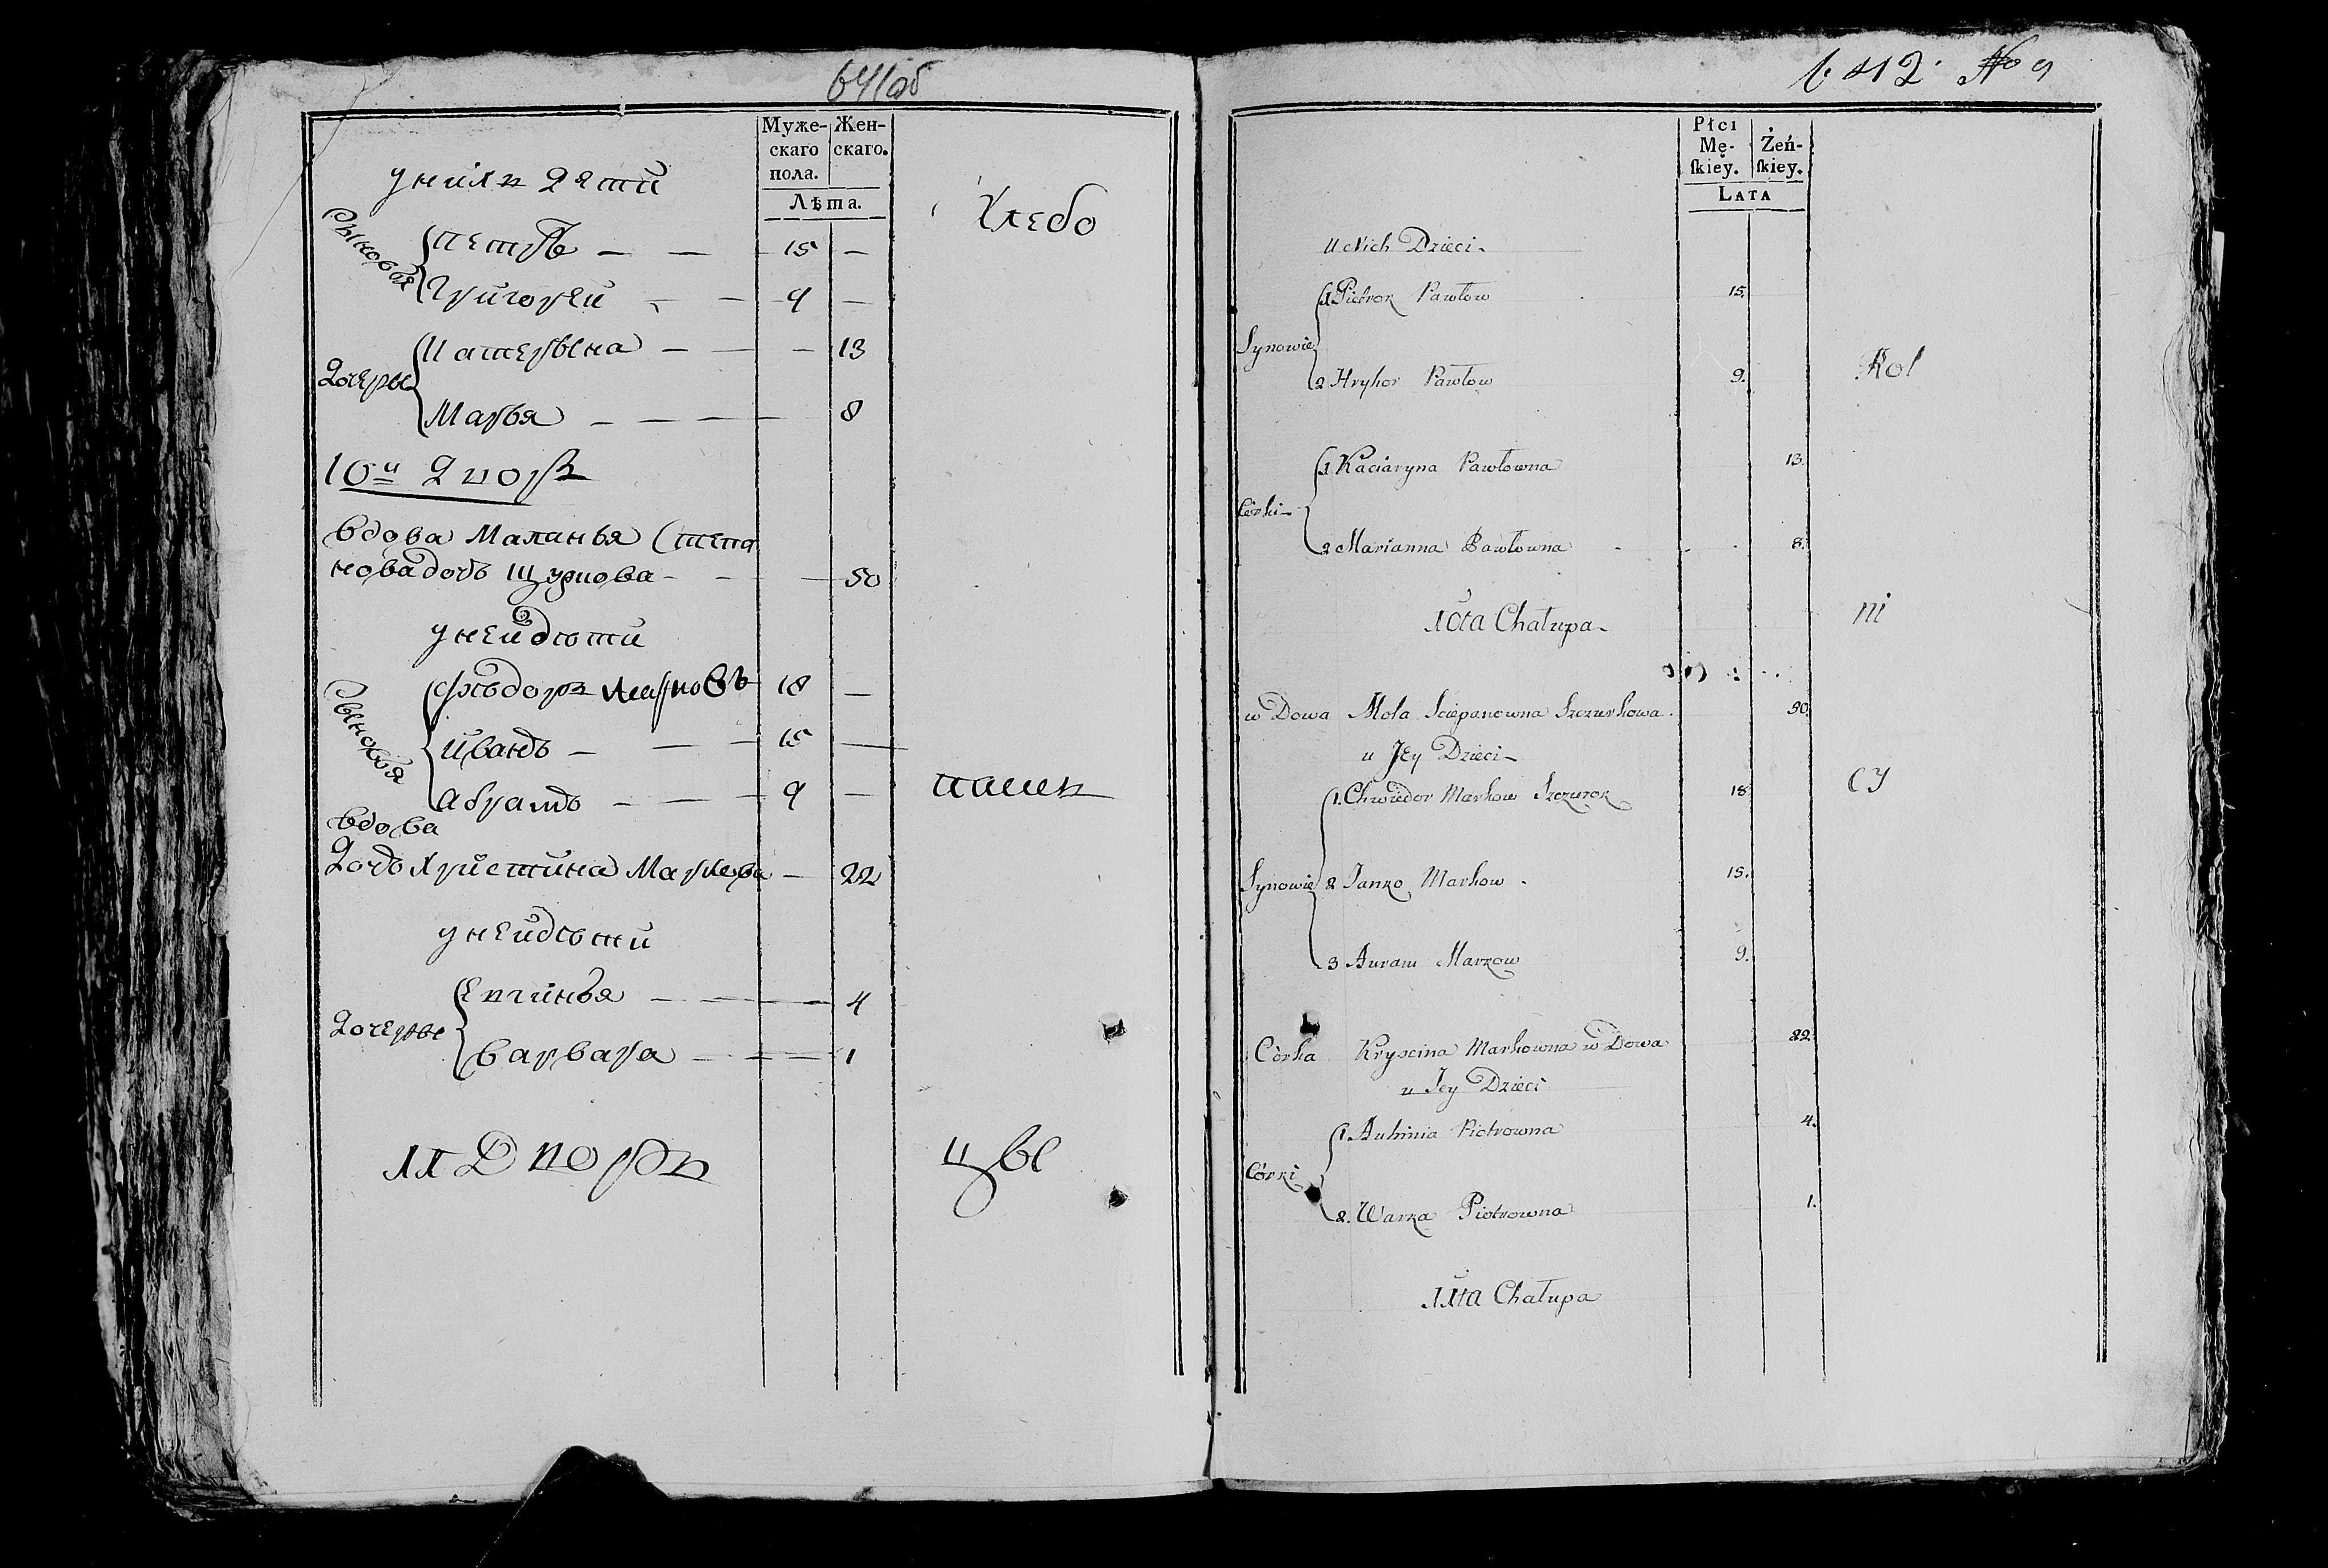 641об
Муже-
скаго
пола.
Жен-
скаго.
Лѣта.
у нихъ дети
Хлебо
Сыновья
петръ — — 15 —
Григорей — 9 —
дочеры
Катерына — — — 13
Марья — — — — 8
10й Дворъ
вдова Маланья Степа
нова дочь Щуркова — — 50
у ней дѣти
Сыновья
Фѣдоръ Марковъ 18 —
Иванъ — — — 15 —
Абрамъ — — — 9 —
пашъ
вдова
Дочь Христина Маркова — 22
у ней дѣти
Дочеры
Евгинья — — — 4
Варвара — — — 1
11 Дворъ
цы
642. No 9
Płci
Mę-
skiey.
Żeń-
skiey.
LATA
u Nich Dzieci
Synowie
1 Pietrok Pawłow 15.
2 Hryhor Pawłow 9.
Rol
Córki
1 Kaciaryna Pawłowna 13.
2 Marianna Pawłowna 8.
10ta Chałupa
ni
wDowa Mola Sciepanowna Szczurkowa 50
u Jey Dzieci
cy
Synowie
1. Chwiedor Markow Szczurok 18
2 Janko Markow 15.
3 Auram Markow 9.
Córka Kryscina Markowna wDowa 22.
u Jey Dzieci
Córki
1. Auhinia Piotrowna 4.
2. Warka Piotrowna 1.
11ta Chałupa